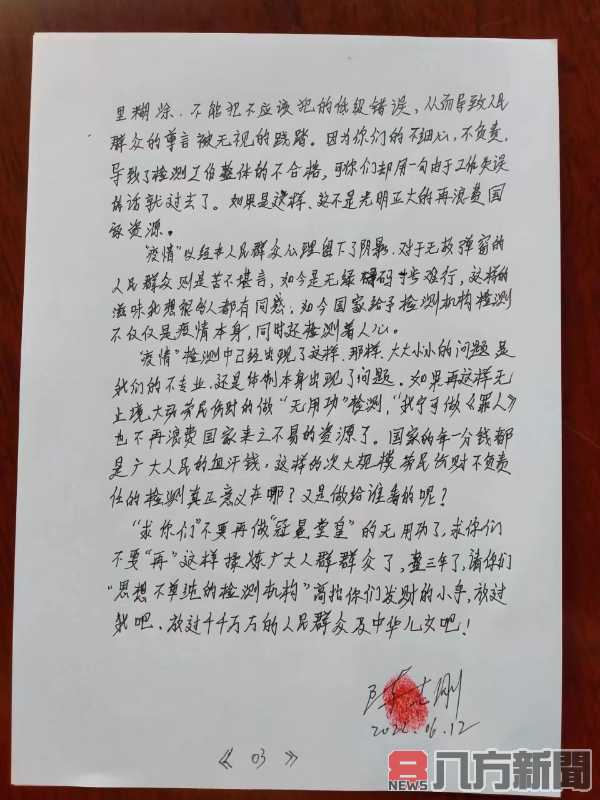 里糊涂、不能犯不应该犯的低级错误，从而导致人民
群众的尊言被无视的践踏。因为你们的不细心，不负责，
导致了检测工作整体的不合格，可你们却用一句由于工作失误
的话就过去了。如果是这样、这不是光明正大的再浪费国
家资源。
"疫情"以经书人民群众心理留下了阴影，对于无故弹窗的
人民群众则是苦不堪言，如今是无绿码寸步难行，这样的
滋味我想很多人都有同感，如今国家给予检测机构检测
不仅仅是疫情本身，同时还检测着人心。
"疫情"检测中已经出现了这样、那样、大大小小的问题是
我们的不专业，还是体制本身出现了问题。如果再这样无
止境、大劳民伤财的做"无用功"检测，"我宁可做《罪人》
也不再浪费国家来之不易的资源了。国家的每一分钱都
是广大人民的血汗钱，这样的次大规模劳民伤财不负责
任的检测真正意义在哪？又是做给谁看的呢？
"求你们"不要再做"冠冕堂皇"的无用功了，求你们
不要"再"这样揉炼广大人群群众了，整三年了，请你们
"思想不单纯的检测机构"高抬你们发财的小手，放过
我吧、放过千千万万的人民群众及中华儿女吧！
2022.06.12
《 03 》
8 NEWS 八方新聞